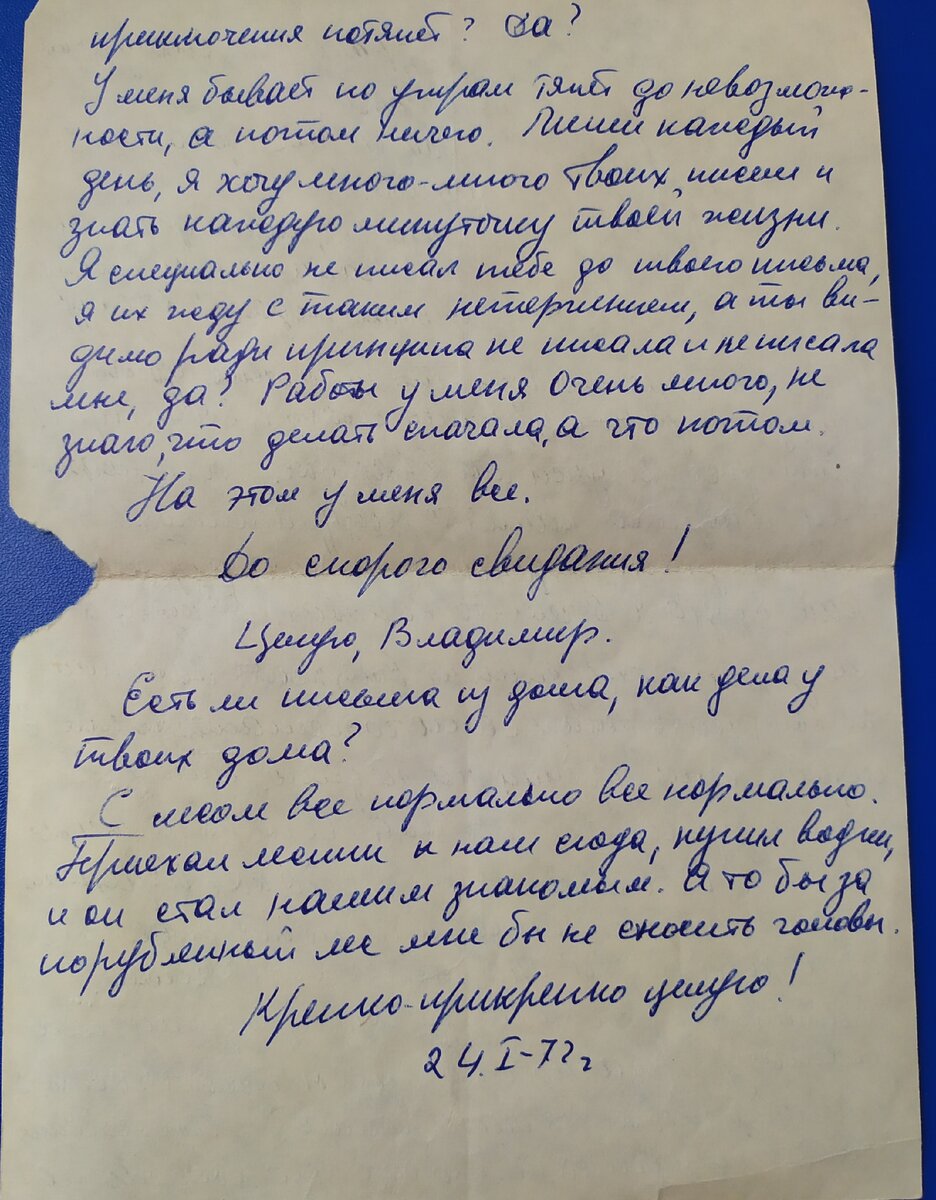 приключения потянет? Да?
У меня бывает по утрам тянет до невозмож-
ности, а потом ничего. Пиши каждый
день, я хочу много-много твоих писем и
знать каждую минуточку твоей жизни.
Я специально не писал тебе до твоего письма,
я их жду с таким нетерпением, а ты ви-
димо ради принципа не писала и не писала
мне, да? Работы у меня очень много, не
знаю, что делать сначала, а что потом.
На этом у меня все.
До скорого свидания!
Целую, Владимир.
Есть ли письма из дома, как дела у
твоих дома?
С лесом все нормально все нормально.
Приехал к нам сюда, купил водки,
и он стал нашим знакомым. А то бы за
порубленный лес мне бы не сносить головы.
Крепко-прикрепко целую!
24.I-72г